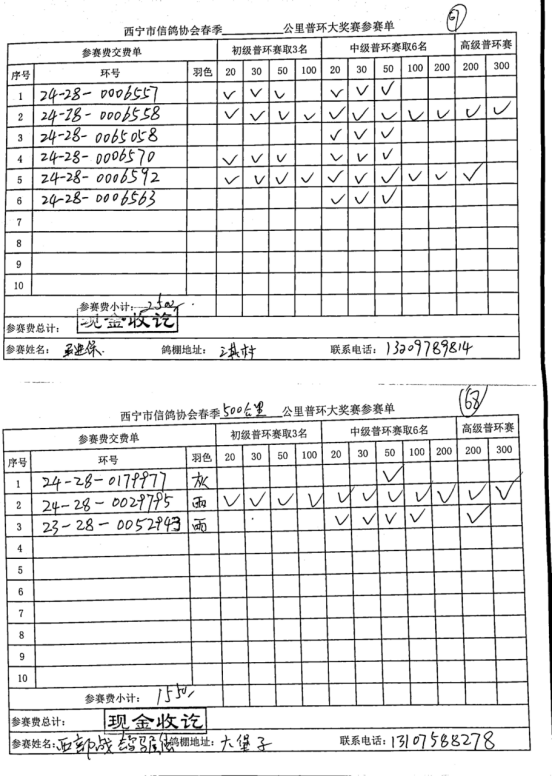 67
西宁市信鸽协会春季________公里普环大奖赛参赛单
参赛费交费单 初级普环赛取3名 中级普环赛取6名 高级普环赛
序号 环号 羽色 20 30 50 100 20 30 50 100 200 200 300
1 24-28-0006557 ✓ ✓ ✓ ✓ ✓ ✓
2 24-28-0006558 ✓ ✓ ✓ ✓ ✓ ✓ ✓ ✓ ✓ ✓ ✓
3 24-28-0065058 ✓ ✓ ✓
4 24-28-0006570 ✓ ✓ ✓ ✓ ✓ ✓
5 24-28-0006592 ✓ ✓ ✓ ✓ ✓ ✓ ✓ ✓ ✓ ✓
6 24-28-0006563 ✓ ✓ ✓
7
8
9
10
参赛费小计：2500
参赛费总计： 现金收讫
参赛姓名： 鸽棚地址： 联系电话：13209789814
168
西宁市信鸽协会春季500公里公里普环大奖赛参赛单
参赛费交费单 初级普环赛取3名 中级普环赛取6名 高级普环赛
序号 环号 羽色 20 30 50 100 20 30 50 100 200 200 300
1 24-28-0179977 灰 ✓
2 24-28-0029795 雨 ✓ ✓ ✓ ✓ ✓ ✓ ✓ ✓ ✓ ✓ ✓
3 23-28-0052943 雨 ✓ ✓ ✓ ✓ ✓
4
5
6
7
8
9
10
参赛费小计：1550
参赛费总计： 现金收讫
参赛姓名：西部战鸽 鸽棚地址：大堡子 联系电话：13107588278